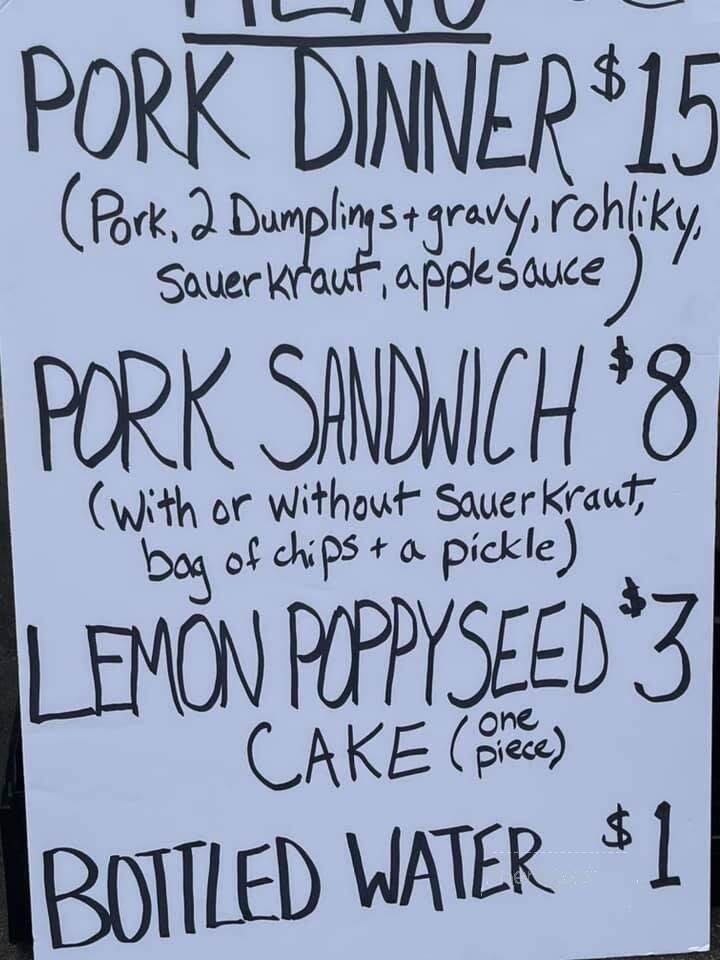 MENU
PORK DINNER $15
(Pork, 2 Dumplings + gravy, rohliky,
Sauerkraut, applesauce)
PORK SANDWICH $8
(with or without Sauerkraut,
bag of chips + a pickle)
LEMON POPPYSEED $3
CAKE (one piece)
BOTTLED WATER $1